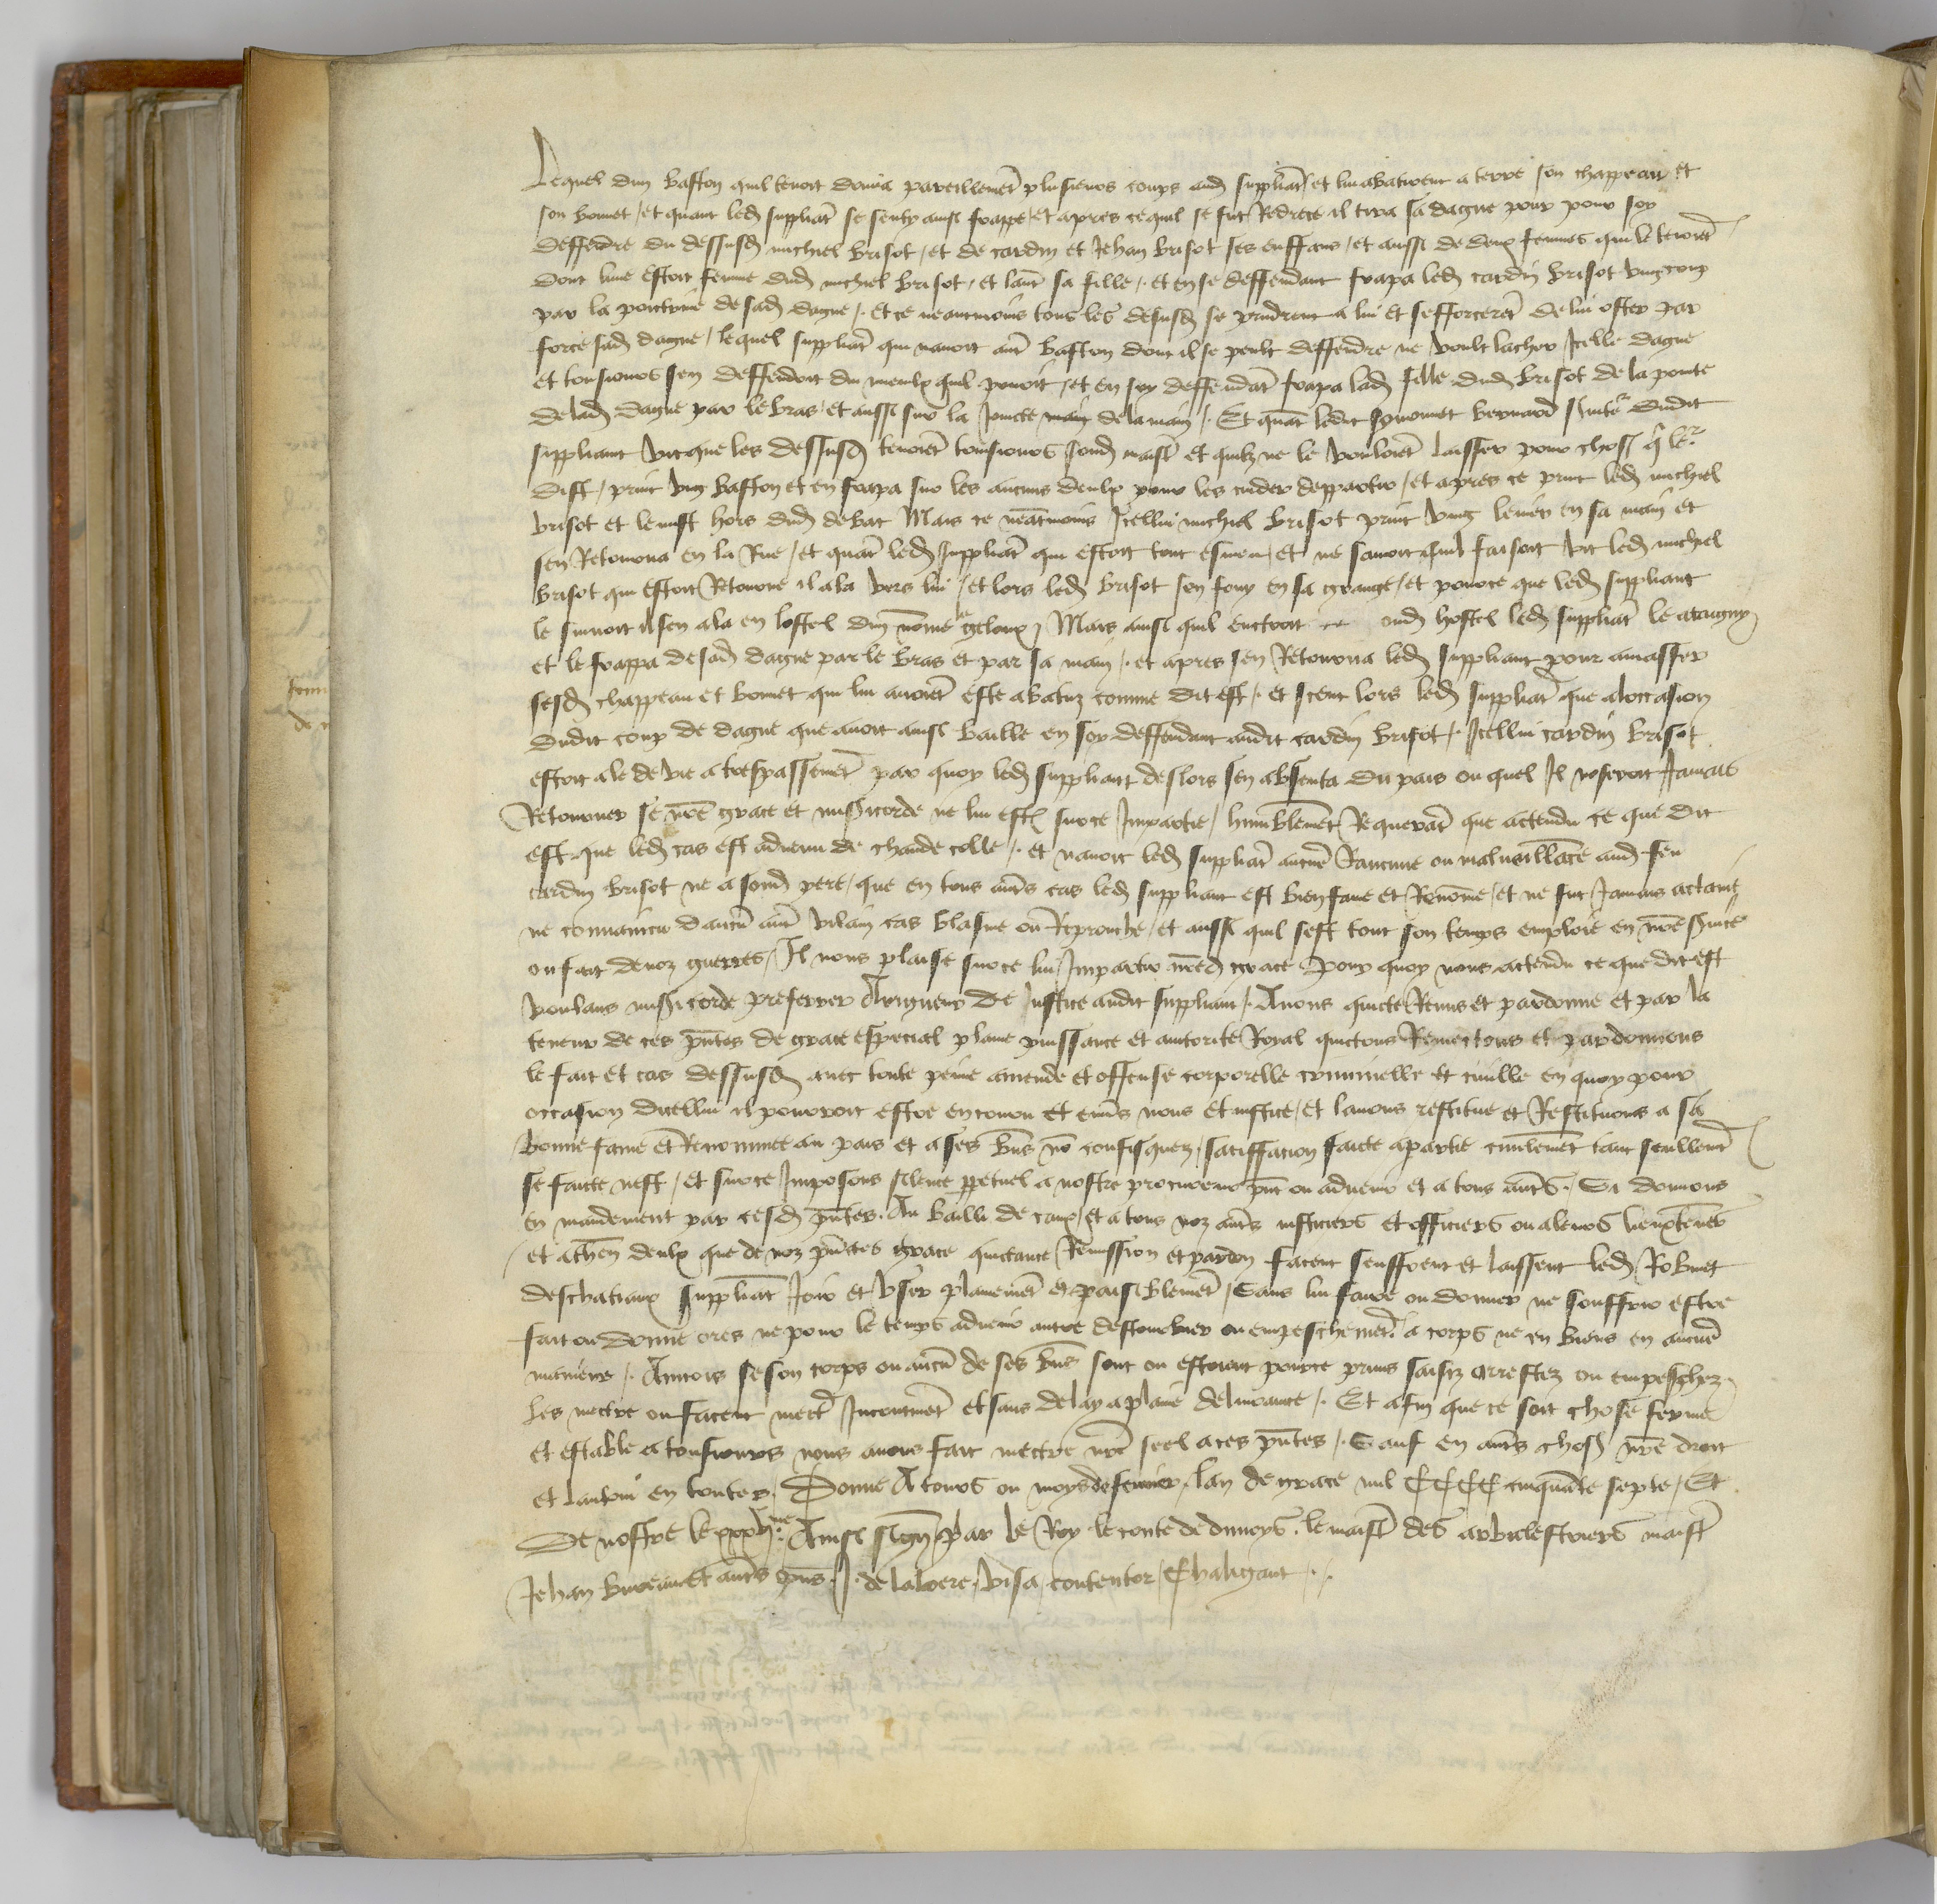 Lequel dun baston quil tenoit donna pareillemēt plusieurs coups aud suppliāt et lui abatirent a terre son chappeau et
son bonnet / et quant led suppliāt se senty ainsi frappe / et apres ce quil se fut Redrece il tira sa dague pour pour soy
deffendre du dessusd michiel brisot / et de cardin et Jehan brisot ses enffans / et aussi de deux femmes qui le tenoiēt
dont lune estoit femme dud michiel brisot / et laut̄ sa fille / et en se deffendant frapa led cardin brisot ung coup
par la poictrine de sad dague / et ce neantmoins tous les desusd se prindrent a lui et sefforcerēt de lui oster par
force sad dague / lequel suppliāt qui navoit aut̄ baston dont il se peult deffendre ne voult lacher Icelle dague
et tousiours sen deffendoit du mieulx quil povoit / et en soy deffendāt frapa lad fille dud brisot de la pointe
de lad dague par le bras / et aussi sur la Joincte main de la main / Et quāt ledit bernard s̄uitr̄ dudit
suppliant vit que les dessusd tenoiēt tousiours sond maist̄ et quilz ne le vouloiēt laisser pour chose q̄ le
dist / print ung baston et en frapa sur les aucuns deulx pour les cuider deppartir / et apres ce print led michiel
brisot et le mist hors dud debat Mais ce neātmoins Icellui michiel brisot print ung levier en sa main et
sen Retourna en la Rue / et quāt led suppliāt qui estoit tout esmeu / et ne savoit quil faisoit vit led michiel
brisot qui estoit Retourne il ala vers lui / et lors led brisot sen fouy en sa grange / et pource que led suppliant
le suivoit il sen ala en lostel dun nōme geloux / Mais ainsi quil entroit oud hostel led suppliāt le ataigny
et le frappa de sad dague par le bras et par sa main / et apres sen Retourna led suppliant pour amasser
sesd chappeau et bonnet qui lui avoiēt este abatuz comme dit est / et sceut lors led suppliāt que aloccasion
dudit coup de dague que avoit ainsi baille en soy deffendant audit cardin brisot / Icellui cardin brisot
estoit ale de vie a trespassemēt par quoy led suppliant deslors sen absenta du pais ou quel Il noseroit Jamais
Retourner se nr̄e grace et misicorde ne lui est sur ce Impartie / humblemēt Requerāt que actendu ce que dit
est que led cas est advenu de chaude colle / et navoit led suppliāt aucūe Rancune ou malveillāce aud feu
cardin brisot ne a sond pere / que en tous aut̄s cas led suppliant est bien fame et Renōme / et ne fut Jamais actaint
ne convaincu daucū aut̄ vilain cas blasme ou Reprouche / et aussi quil sest tout son temps emploie en nr̄e s̄uice
ou fait de noz guerres / Il nous plaise sur ce lui Impartir nr̄ed grace Pour quoy nous actendu ce que dit est
voulans misicorde preferrer A Rigueur de Justice audit suppliant / Avons quicte Remis et pardonne et par la
teneur de ces p̄ntes de grace especial plaine puissance et autorite Royal quictons Remectons et pardonnons
le fait et cas dessusd avec toute peine amende et offense corporelle criminelle et civille en quoy pour
occasion dicellui il pourroit estre encouru et env̄s nous et justice / et lavons restitue et Restituons a sa
bonne fame et Renommee au pais et a ses bn̄s nō confisquez / satisfacion faicte a partie civilemēt tant seullemt̄
se faicte nest / et sur ce Imposons silence ppetuel a nostre procureur p̄nt ou advenir et a tous aut̄s. Si donnons
en mandement par cesd p̄ntes. Au bailli de caux / et a tous noz aut̄s justiciers et officiers ou a leurs lieuxtenēs
et a chūn deulx que de noz p̄ntes grace quictance Remission et pardon facent seuffrent et laissent led Robinet
deschateaux suppliāt Joir et vser plainemēt et paisiblemēt / Sans lui faire ou donner ne souffrir estre
fait ou donne ores ne pour le temps advenir aucun destourbier ou empeschemēt a corps ne en biens en aucūe
maniere / Aincois se son corps ou aucū de ses bn̄s sont ou estoient pource prins saisiz arrestez ou empeschez
les mectre ou facent mectr̄ Incontinēt et sans delay a plaine delivrance / Et afin que ce soit chose ferme
et estable a tousiours nous avons fait mectre nr̄e seel a ces p̄ntes / Sauf en aut̄s choses nr̄e droit
et lautrui en toutes. Donne A tours ou moys de fevrier / lan de grace mil CCCC cinquāte sept / Et
De nostre Regne. Ainsi signe par le Roy le conte de dunoys. le maist̄ des arbalestriers maist̄
Jehan bureau et aut̄s p̄ns. J. de laloere. visa contentor / Chaligant.